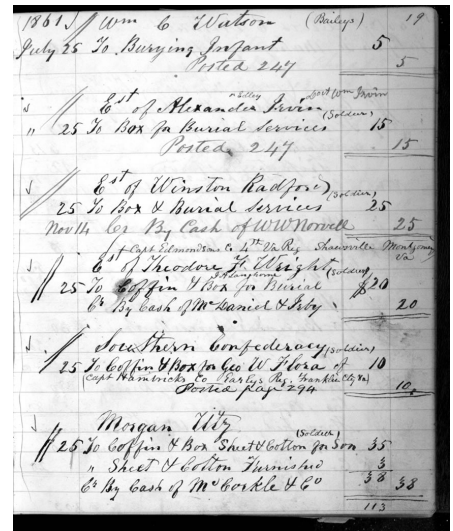 1861 Wm C Watson (Baileys) 19
July 25 To Burying Infant 5
Posted 247 5
Est of Alexander Irvin (Soldier)
" 25 To Box for Burial Services 15
Posted 247 15
Est of Winston Radford (Soldier)
25 To Box & Burial Services 25
Nov 14 Cr By Cash of WW Norvell 25
Capt Edmondson Co 4th Va Reg Shawsville Montgomery Va
Est of Theodore F. Wright (Soldier)
25 To Coffin & Box for Burial $20
Cr By Cash of McDaniel & Irby 20
Southern Confederacy (Soldier)
25 To Coffin & Box for Geo W Flora of 10
(Capt Hambricks Co Earlys Reg. Franklin Cty Va)
Posted page 294 10
Morgan Utz (Soldier)
25 To Coffin & Box Sheet & Cotton for Son 35
" Sheet & Cotton Furnished 3
38
Cr By Cash of McCorkle & Co 38
113